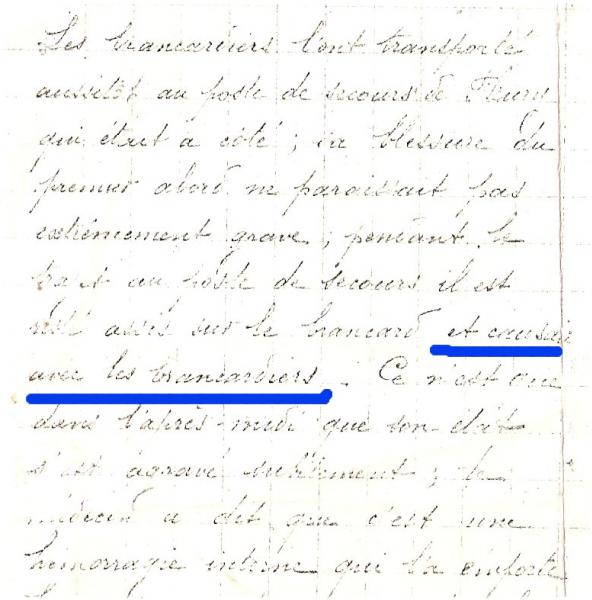 Les brancardiers l'ont transporté
aussitôt au poste de secours de Fleury
qui était a côté ; sa blessure du
premier abord ne paraissait pas
extrêmement grave ; pendant le
trajet au poste de secours il est
resté assis sur le brancard et causait
avec les brancardiers. Ce n'est que
dans l'après-midi que son état
s'est agravé subitement ; le
médecin a dit que c'est une
hémorragie interne qui l'a emporté